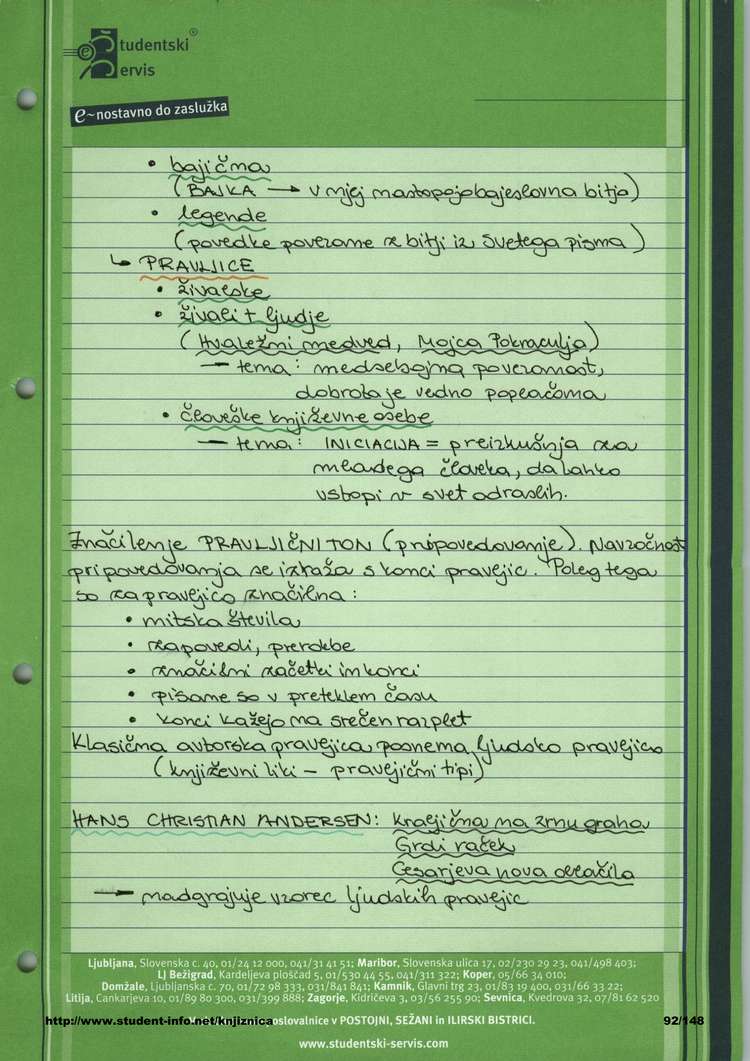 Študentski®
Servis
e~nostavno do zaslužka
• bajična
(BAJKA → v njej nastopajo bajeslovna bitja)
• legende
(povedke povezane z bitji iz Svetega pisma)
↳ PRAVLJICE
• živalske
• živali + ljudje
(Hvaležni medved, Mojca Pokraculja)
— tema: medsebojna povezanost,
dobrota je vedno poplačana
• človeške književne osebe
— tema: INICIACIJA = preizkušnja za
mladega človeka, da lahko
vstopi v svet odraslih.
Značilenje PRAVLJIČNI TON (pripovedovanje). Navzočnost
pripovedovanja se izraža s konci pravljic. Poleg tega
so za pravljico značilna:
• mitska števila
• zapovedi, prerokbe
• značilni začetki in konci
• pisane so v preteklem času
• konci kažejo na srečen razplet
Klasična avtorska pravljica posnema ljudsko pravljico
(književni liki – pravljični tipi)
HANS CHRISTIAN ANDERSEN: Kraljična na zrnu graha
Grdi raček
Cesarjeva nova oblačila
→ nadgrajuje vzorec ljudskih pravljic
Ljubljana, Slovenska c. 40, 01/24 12 000, 041/31 41 51; Maribor, Slovenska ulica 17, 02/230 29 23, 041/498 403;
LJ Bežigrad, Kardeljeva ploščad 5, 01/530 44 55, 041/311 322; Koper, 05/66 34 010;
Domžale, Ljubljanska c. 70, 01/72 98 333, 031/841 841; Kamnik, Glavni trg 23, 01/83 19 400, 031/66 33 22;
Litija, Cankarjeva 10, 01/89 80 300, 031/399 888; Zagorje, Kidričeva 3, 03/56 255 90; Sevnica, Kvedrova 32, 07/81 62 520
http://www.student-info.net/knjiznica poslovalnice v POSTOJNI, SEŽANI in ILIRSKI BISTRICI. 92/148
www.studentski-servis.com